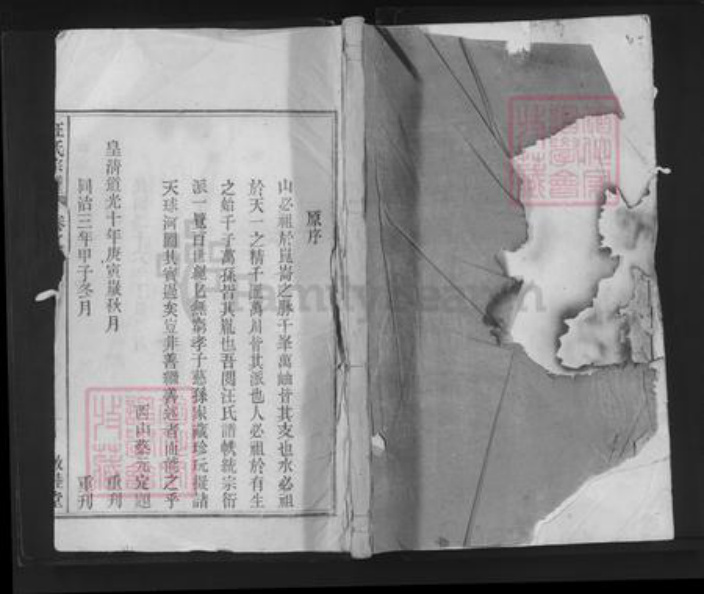 原序
山必祖於崑崙之脉千峯萬岫皆其支也水必祖
於天一之精千流萬川皆其派也人必祖於有生
之始千子萬孫皆其胤也吾閱汪氏譜帙統宗衍
派一覽百世親疎無窮孝子慈孫家藏珍玩擬諸
天球河圖其寶過矣豈非善繼善述者而能之乎
西山蔡元定題
皇清道光十年庚寅嵗秋月 重刊
同治三年甲子冬月 重刊
汪氏宗譜 卷之
敦睦堂
FamilySearch